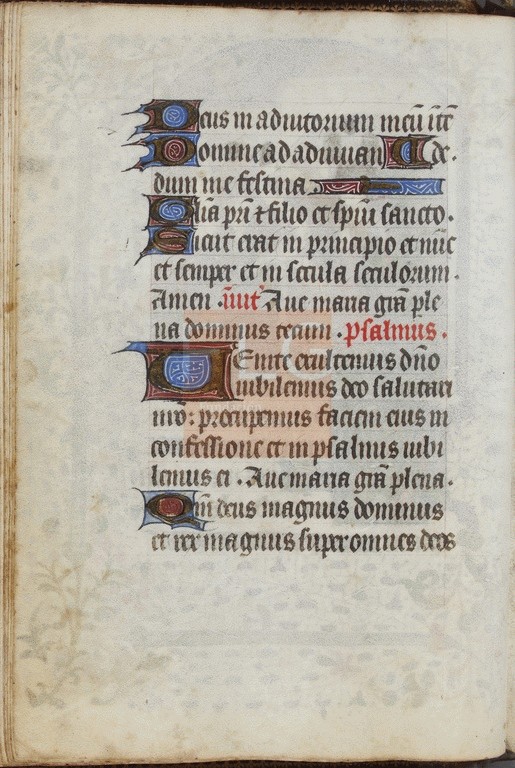 Deus in adiutorium meū itē
Domine ad adiuuan A de.
dum me festina
Glīa pr̄i ⁊ filio et sp̄ui sancto.
Sicut erat in principio et nūc
et semper et in secula seculorum.
Amen. īuit̄ Aue maria grā ple
na dominus tecum. psalmus.
Venite exultemus dn̄o
iubilemus deo salutari
nr̄o: preocupemus faciem eius in
confessione et in psalmis iubi
lemus ei. Aue maria grā plena.
Qm̄ deus magnus dominus
et rex magnus super omnes deos